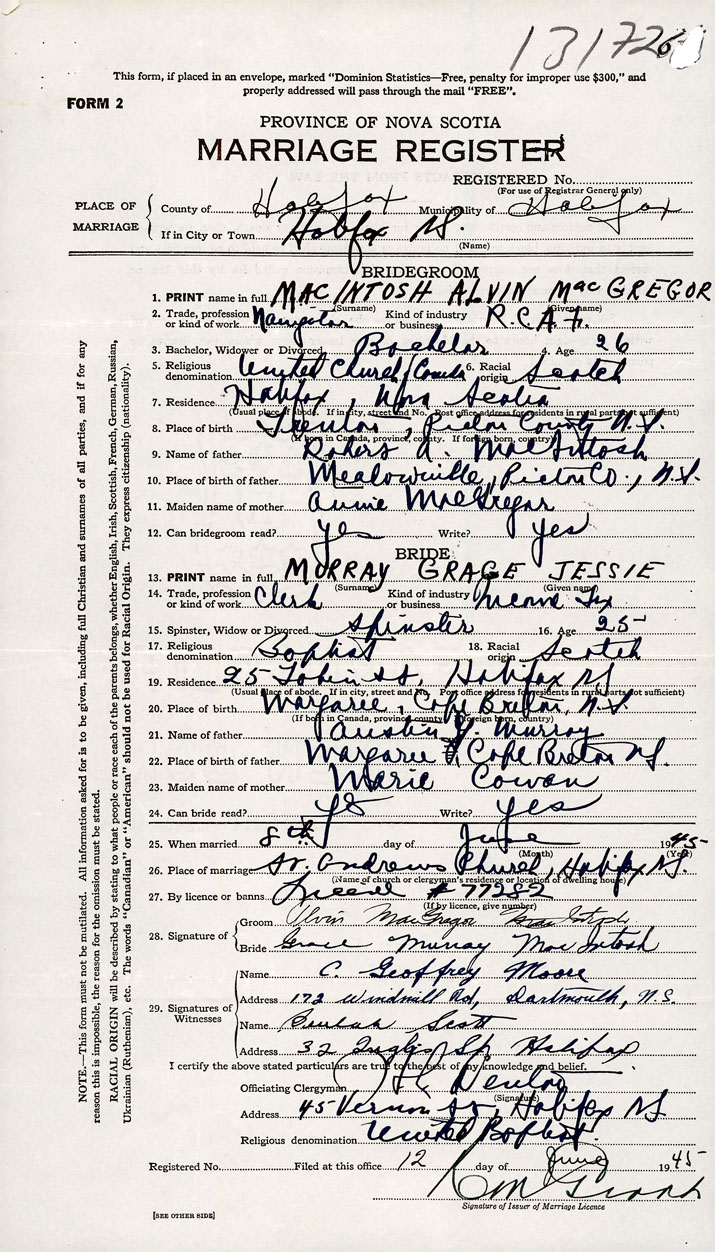 13172
This form, if placed in an envelope, marked "Dominion Statistics—Free, penalty for improper use $300," and
properly addressed will pass through the mail "FREE".
FORM 2
PROVINCE OF NOVA SCOTIA
MARRIAGE REGISTER
REGISTERED No.
(For use of Registrar General only)
PLACE OF MARRIAGE
County of Halifax Municipality of Halifax
If in City or Town Halifax N.S.
(Name)
BRIDEGROOM
1. PRINT name in full MACINTOSH ALVIN MacGREGOR
(Surname) (Given name)
2. Trade, profession or kind of work Navigator Kind of industry or business R.C.A.F.
3. Bachelor, Widower or Divorced Bachelor 4. Age 26
5. Religious denomination United Church/Canada 6. Racial origin Scotch
7. Residence Halifax, Nova Scotia
(Usual place of abode. If in city, street and No. Post office address for residents in rural parts not sufficient)
8. Place of birth Trenton, Pictou County N.S.
(If born in Canada, province, county. If foreign born, country)
9. Name of father Robert A. MacIntosh
10. Place of birth of father Meadowville, Pictou Co., N.S.
11. Maiden name of mother Annie MacGregor
12. Can bridegroom read? yes Write? yes
BRIDE
13. PRINT name in full MURRAY GRACE JESSIE
(Surname) (Given name)
14. Trade, profession or kind of work Clerk Kind of industry or business Income Tax
15. Spinster, Widow or Divorced Spinster 16. Age 25
17. Religious denomination Baptist 18. Racial origin Scotch
19. Residence 25 Tobin St, Halifax NS
(Usual place of abode. If in city, street and No. Post office address for residents in rural parts not sufficient)
20. Place of birth Margaree, Cape Breton, N.S.
(If born in Canada, province, county. If foreign born, country)
21. Name of father Austin J. Murray
22. Place of birth of father Margaree, Cape Breton NS.
23. Maiden name of mother Marie Cowan
24. Can bride read? yes Write? yes
25. When married 8th day of June 1945
(Month) (Year)
26. Place of marriage St. Andrews Church, Halifax N.S.
(Name of church or clergyman's residence or location of dwelling house)
27. By licence or banns License # 77282
(If by licence, give number)
28. Signature of
Groom Alvin MacGregor MacIntosh
Bride Grace Murray MacIntosh
29. Signatures of Witnesses
Name C. Geoffrey Moore
Address 172 Windmill Rd, Dartmouth, N.S.
Name Beulah Scott
Address 32 Inglis St, Halifax
I certify the above stated particulars are true to the best of my knowledge and belief.
Officiating Clergyman Denton
(Signature)
Address 45 Vernon St, Halifax NS
Religious denomination United Baptist.
Registered No. Filed at this office 12 day of June 1945
Signature of Issuer of Marriage Licence
[SEE OTHER SIDE]
NOTE.—This form must not be mutilated. All information asked for is to be given, including full Christian and surnames of all parties, and if for any
reason this is impossible, the reason for the omission must be stated.
RACIAL ORIGIN will be described by stating to what people or race each of the parents belongs, whether English, Irish, Scottish, French, German, Russian,
Ukrainian (Ruthenian), etc. The words "Canadian" or "American" should not be used for Racial Origin. They express citizenship (nationality).